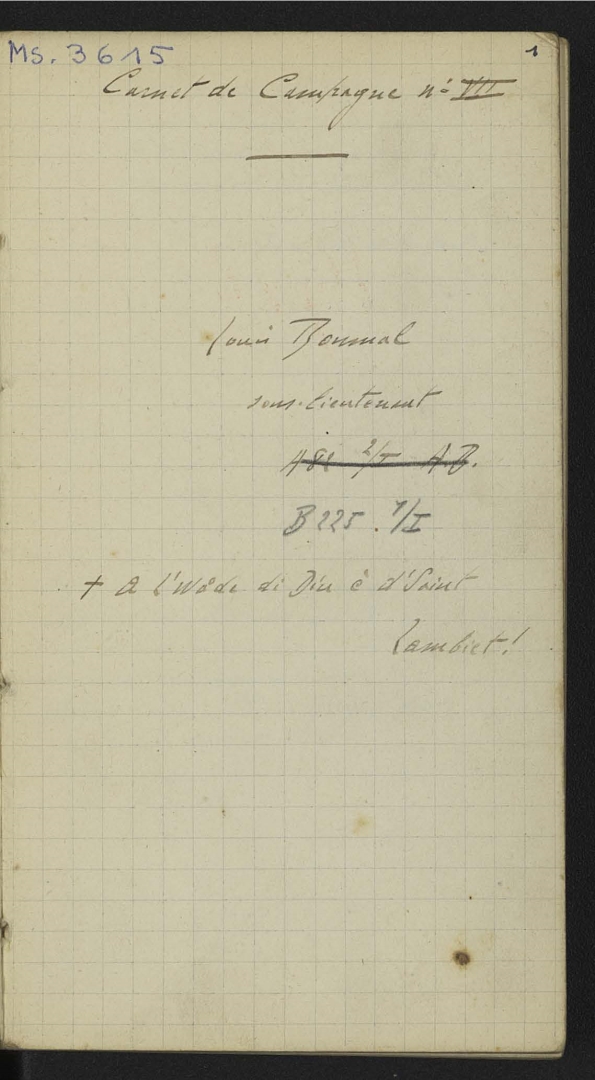 Ms. 3615
1
Carnet de Campagne n° VII
Louis Bonmal
sous-lieutenant
A 82 2/I A.B.
B 225. 1/I
+ A l'Wåde di Diu è d'Saint
Lambiet!